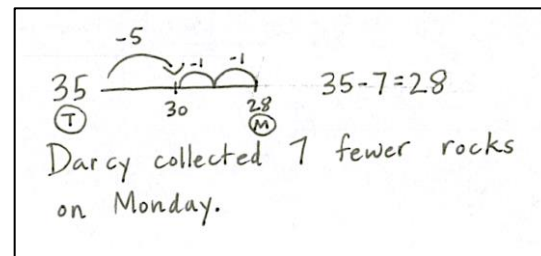 -5
-1 -1
35 30 28 35-7=28
T M
Darcy collected 7 fewer rocks
on Monday.